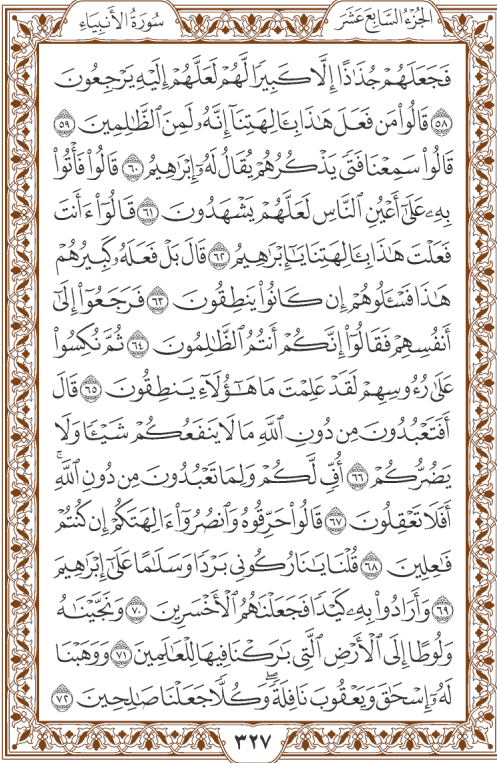 الجزء السابع عشر
سورة الأنبياء
فَجَعَلَهُمْ جُذَٰذًا إِلَّا كَبِيرًا لَّهُمْ لَعَلَّهُمْ إِلَيْهِ يَرْجِعُونَ
٥٨ قَالُوا۟ مَن فَعَلَ هَٰذَا بِـَٔالِهَتِنَآ إِنَّهُۥ لَمِنَ ٱلظَّٰلِمِينَ ٥٩
قَالُوا۟ سَمِعْنَا فَتًى يَذْكُرُهُمْ يُقَالُ لَهُۥٓ إِبْرَٰهِيمُ ٦٠ قَالُوا۟ فَأْتُوا۟
بِهِۦ عَلَىٰٓ أَعْيُنِ ٱلنَّاسِ لَعَلَّهُمْ يَشْهَدُونَ ٦١ قَالُوٓا۟ ءَأَنتَ
فَعَلْتَ هَٰذَا بِـَٔالِهَتِنَا يَٰٓإِبْرَٰهِيمُ ٦٢ قَالَ بَلْ فَعَلَهُۥ كَبِيرُهُمْ
هَٰذَا فَسْـَٔلُوهُمْ إِن كَانُوا۟ يَنطِقُونَ ٦٣ فَرَجَعُوٓا۟ إِلَىٰٓ
أَنفُسِهِمْ فَقَالُوٓا۟ إِنَّكُمْ أَنتُمُ ٱلظَّٰلِمُونَ ٦٤ ثُمَّ نُكِسُوا۟
عَلَىٰ رُءُوسِهِمْ لَقَدْ عَلِمْتَ مَا هَٰٓؤُلَآءِ يَنطِقُونَ ٦٥ قَالَ
أَفَتَعْبُدُونَ مِن دُونِ ٱللَّهِ مَا لَا يَنفَعُكُمْ شَيْـًٔا وَلَا
يَضُرُّكُمْ ٦٦ أُفٍّ لَّكُمْ وَلِمَا تَعْبُدُونَ مِن دُونِ ٱللَّهِ ۖ
أَفَلَا تَعْقِلُونَ ٦٧ قَالُوا۟ حَرِّقُوهُ وَٱنصُرُوٓا۟ ءَالِهَتَكُمْ إِن كُنتُمْ
فَٰعِلِينَ ٦٨ قُلْنَا يَٰنَارُ كُونِى بَرْدًا وَسَلَٰمًا عَلَىٰٓ إِبْرَٰهِيمَ
٦٩ وَأَرَادُوا۟ بِهِۦ كَيْدًا فَجَعَلْنَٰهُمُ ٱلْأَخْسَرِينَ ٧٠ وَنَجَّيْنَٰهُ
وَلُوطًا إِلَى ٱلْأَرْضِ ٱلَّتِى بَٰرَكْنَا فِيهَا لِلْعَٰلَمِينَ ٧١ وَوَهَبْنَا
لَهُۥٓ إِسْحَٰقَ وَيَعْقُوبَ نَافِلَةً ۖ وَكُلًّا جَعَلْنَا صَٰلِحِينَ ٧٢
٣٢٧